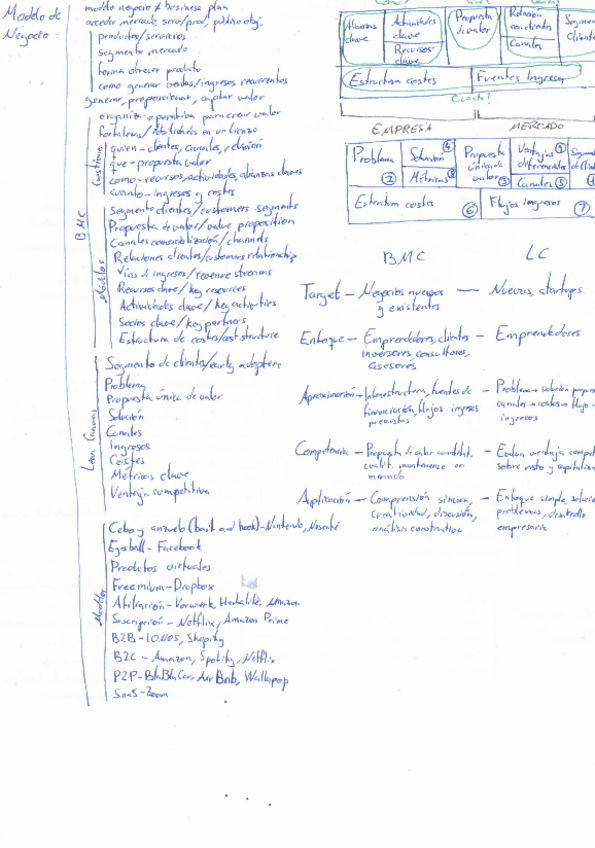 Modelo de
Negocio -
modelo negocio ≠ business plan
acceder mercado, serv/prod, público obj.
productos/servicios
segmento mercado
forma ofrecer producto
como generar ventas/ingresos recurrentes
generar, proporcionar, captar valor
organiza operativa para crear valor
fortalezas/debilidades en un lienzo
BMC
Cuestiones
quien - clientes, canales, relación
que - propuesta valor
como - recursos, actividades, alianzas claves
cuanto - ingresos y costes
Módulos
Segmento clientes/customers segments
Propuesta de valor/value proposition
Canales comercialización/channels
Relaciones clientes/customers relationship
Vías de ingresos/revenue streams
Recursos clave/key resources
Actividades clave/key activities
Socios clave/key partners
Estructura de costes/cost structure
Lean Canvas
Segmento de clientes/early adopters
Problema
Propuesta única de valor
Solución
Canales
Ingresos
Costes
Métricas clave
Ventaja competitiva
Modelos
Cebo y anzuelo (bait and hook) - Nintendo, Nespresso
Eyeball - Facebook
Productos virtuales
Freemium - Dropbox
Afiliación - Vorwerk, Herbalife, Amazon
Suscripción - Netflix, Amazon Prime
B2B - IONOS, Shopify
B2C - Amazon, Spotify, Netflix
P2P - BlaBlaCar, AirBnb, Wallapop
SaaS - Zoom
Alianzas clave
Actividades clave
Recursos clave
Propuesta de valor
Relación con clientes
Canales
Estructura costes
Fuentes Ingresos
Cuanto?
EMPRESA
MERCADO
Problema ②
Solución ④
Métricas ⑧
Propuesta única de valor ③
Ventajas diferenciales
Canales ⑤
Estructura costes ⑥
Flujos ingresos ⑦
BMC LC
Target - Negocios nuevos y existentes — Nuevos, startups
Enfoque - Emprendedores, clientes inversores, consultores, asesores - Emprendedores
Aproximación - Infraestructura, fuentes de financiación, flujos ingresos
Competencia - Propuesta de valor cuantitat. cualit. mantenerse en mercado
Aplicación - Comprensión sincera, creatividad, discusión, análisis constructivo - Enfoque simple,
problemas, desarrollo
empresario